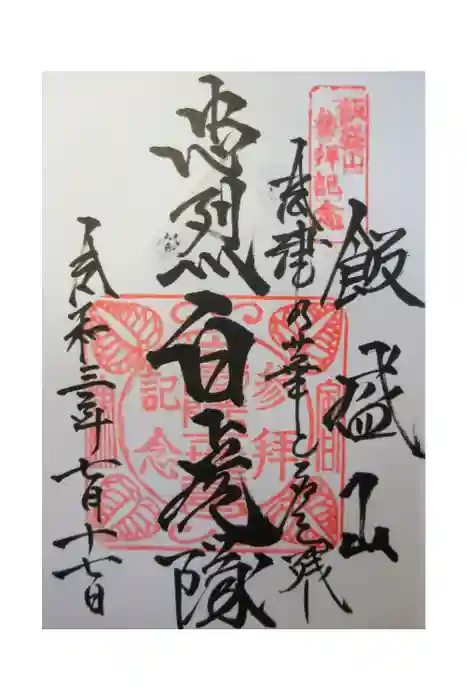 飯盛山参拝記念
飯盛山
会津乃華と名を残
忠烈白虎隊
参拝
記念
令和三年七月十七日